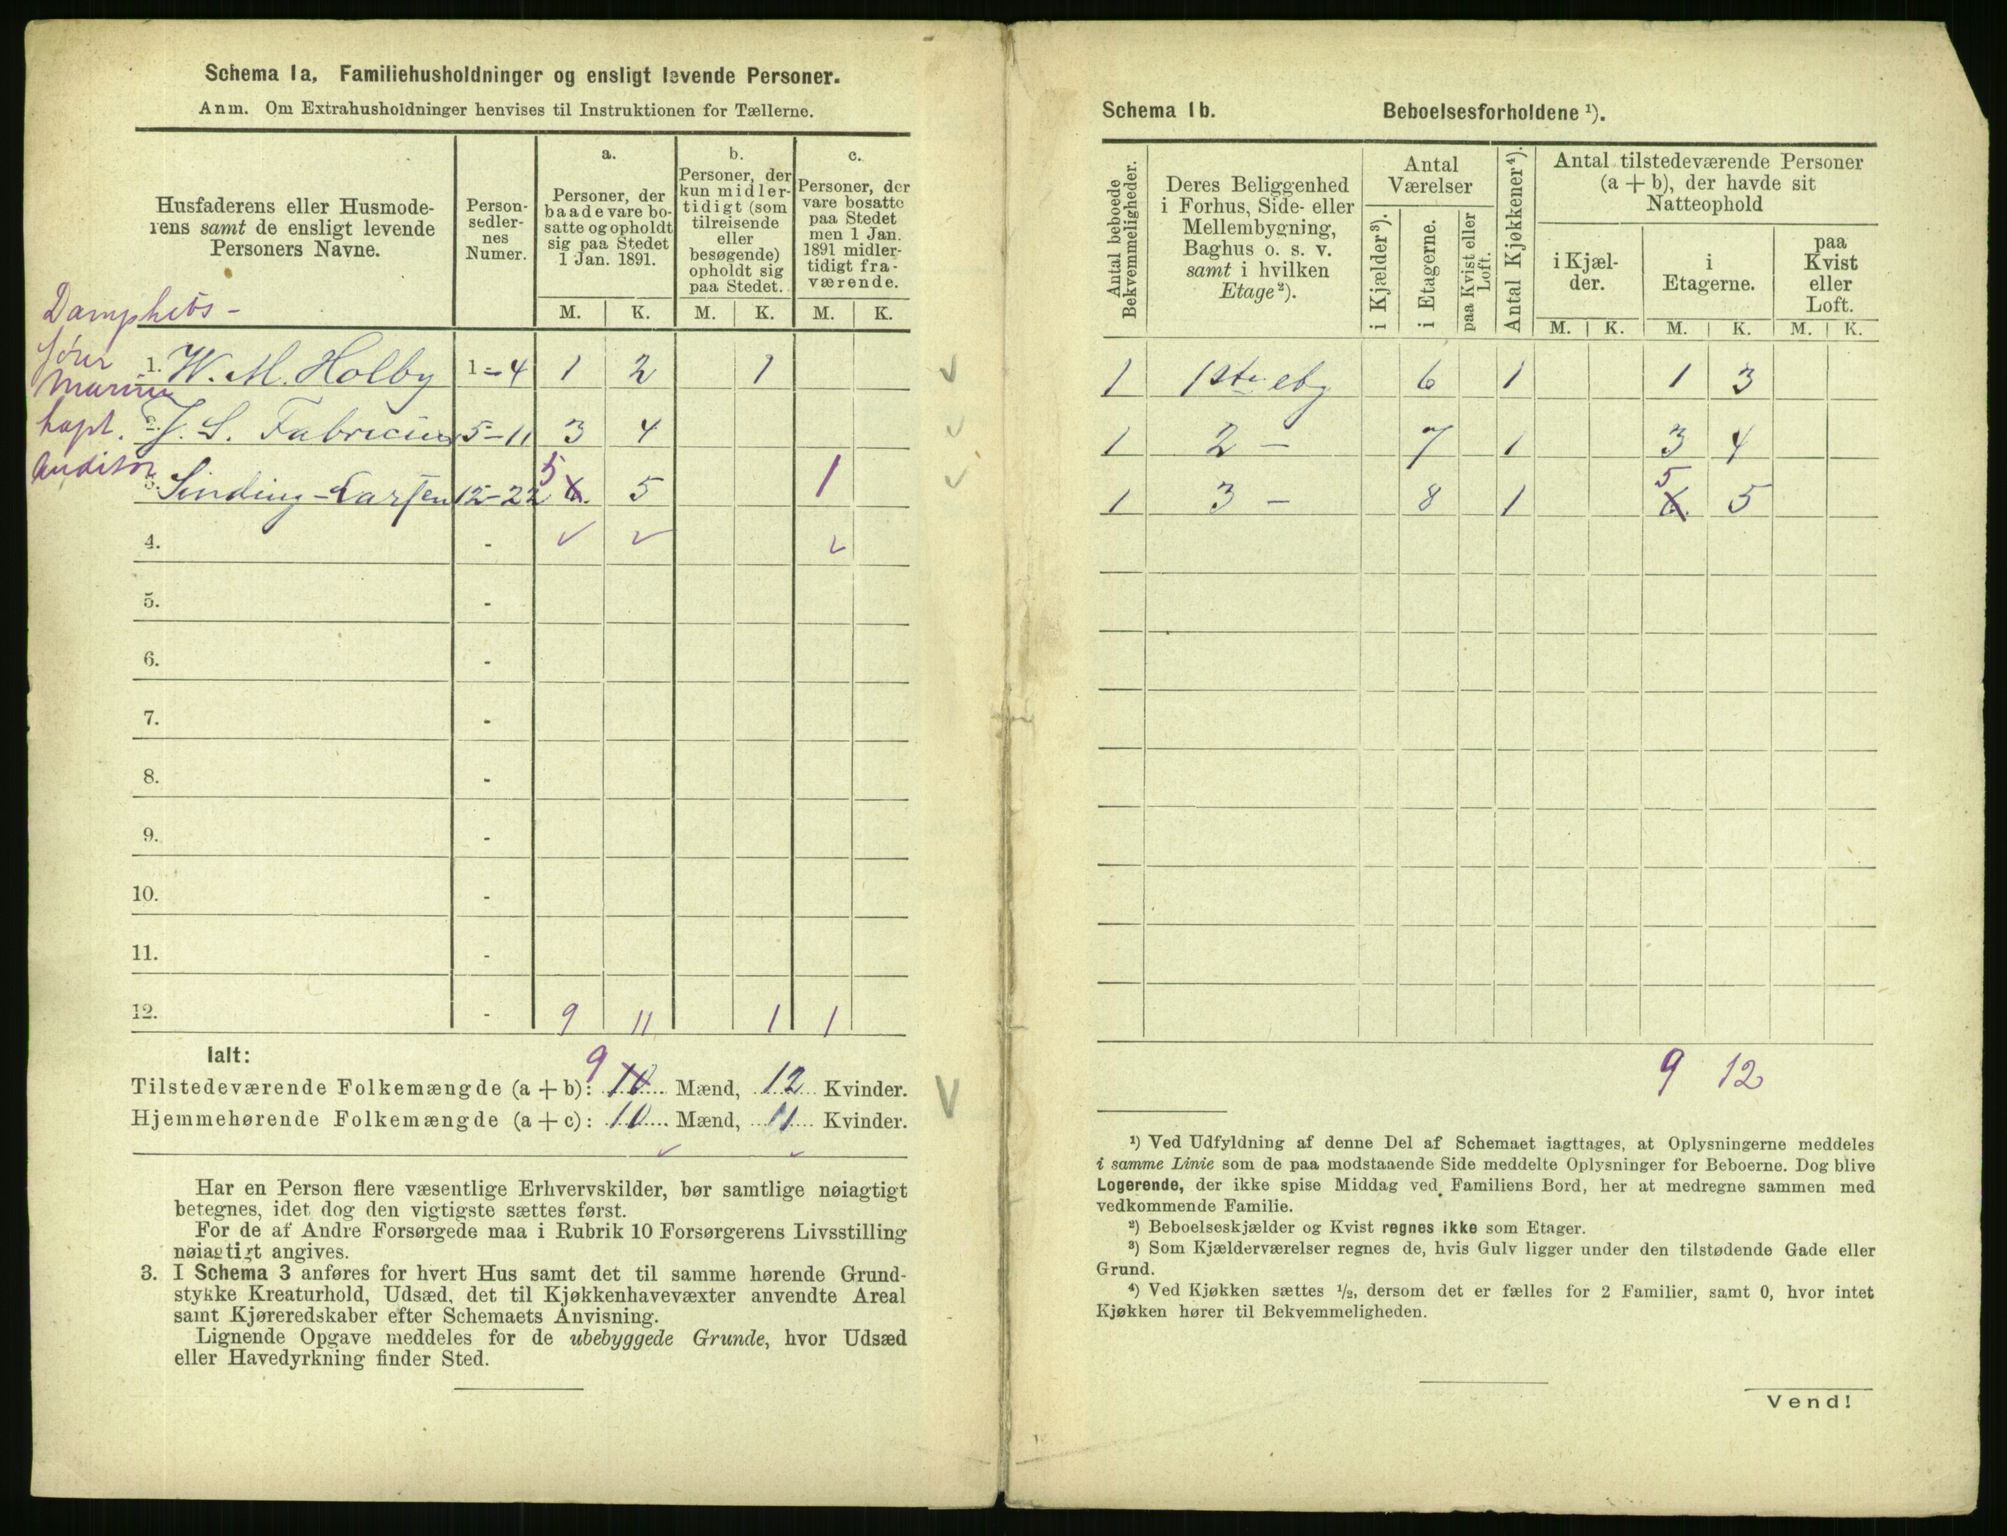 Schema 1a, Familiehusholdninger og ensligt levende Personer.
Anm. Om Extrahusholdninger henvises til Instruktionen for Tællerne.
Husfaderens eller Husmode-
rens samt de ensligt levende
Personers Navne.
Person-
sedler-
nes
Numer.
a.
Personer, der
baade vare bo-
satte og opholdt
sig paa Stedet
1 Jan. 1891.
b.
Personer, der
kun midler-
tidigt (som
tilreisende
eller
besøgende)
opholdt sig
paa Stedet.
c.
Personer, der
vare bosatte
paa Stedet
men 1 Jan.
1891 midler-
tidigt fra-
værende.
M. K. M. K. M. K.
Dampskibs-
fører
1. W. M. Holby 1-4 1 2 1
Marine
kapt.
2. J. S. Fabricius 5-11 3 4
Auditør
3. Sinding-Larsen 12-22 5 6. 5 1
4. -
5. -
6. -
7. -
8. -
9. -
10. -
11. -
12. - 9 11 1 1
Ialt:
Tilstedeværende Folkemængde (a + b): 9 10 Mænd, 12 Kvinder.
Hjemmehørende Folkemængde (a + c): 10 Mænd, 11 Kvinder.
Har en Person flere væsentlige Erhvervskilder, bør samtlige nøiagtigt
betegnes, idet dog den vigtigste sættes først.
For de af Andre Forsørgede maa i Rubrik 10 Forsørgerens Livsstilling
nøiagtigt angives.
3. I Schema 3 anføres for hvert Hus samt det til samme hørende Grund-
stykke Kreaturhold, Udsæd, det til Kjøkkenhavevæxter anvendte Areal
samt Kjøreredskaber efter Schemaets Anvisning.
Lignende Opgave meddeles for de ubebyggede Grunde, hvor Udsæd
eller Havedyrkning finder Sted.
Schema 1b. Beboelsesforholdene ¹).
Antal beboede
Bekvemmeligheder.
Deres Beliggenhed
i Forhus, Side- eller
Mellembygning,
Baghus o. s. v.
samt i hvilken
Etage²).
Antal
Værelser
i Kjælder³).
i Etagerne.
paa Kvist eller
Loft.
Antal Kjøkkener⁴).
Antal tilstedeværende Personer
(a + b), der havde sit
Natteophold
i Kjæl-
der.
i
Etagerne.
paa
Kvist
eller
Loft.
M. K. M. K. M. K.
1 1ste eby 6 1 1 3
1 2 - 7 1 3 4
1 3 - 8 1 5 6. 5
9 12
¹) Ved Udfyldning af denne Del af Schemaet iagttages, at Oplysningerne meddeles
i samme Linie som de paa modstaaende Side meddelte Oplysninger for Beboerne. Dog blive
Logerende, der ikke spise Middag ved Familiens Bord, her at medregne sammen med
vedkommende Familie.
²) Beboelseskjælder og Kvist regnes ikke som Etager.
³) Som Kjælderværelser regnes de, hvis Gulv ligger under den tilstødende Gade eller
Grund.
⁴) Ved Kjøkken sættes ½, dersom det er fælles for 2 Familier, samt 0, hvor intet
Kjøkken hører til Bekvemmeligheden.
Vend!